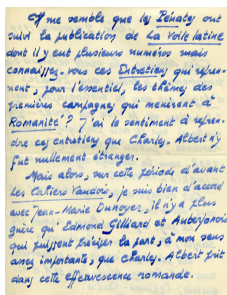 Il me semble que les Pénates ont
suivi la publication de La Voile latine
dont il y eut plusieurs numéros mais
connaissez-vous ces Entretiens qui repren-
nent, pour l'essentiel, les thèmes des
premières campagnes qui menèrent à
Romanité ? J'ai le sentiment à repren-
dre ces entretiens que Charley. Albert n'y
fut nullement étranger.
Mais alors, sur cette période d'avant
les Cahiers Vaudois, je suis bien d'accord
avec Jean-Marie Dunoyer, il n'y a plus
guère qu'Edmond Gilliard et Auberjonois
qui puissent préciser la part, à mon sens
assez importante, que Charley. Albert prit
dans cette effervescence romande.